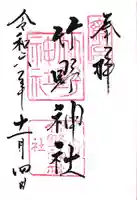 奉拝
竹野神社
令和二年十一月四日